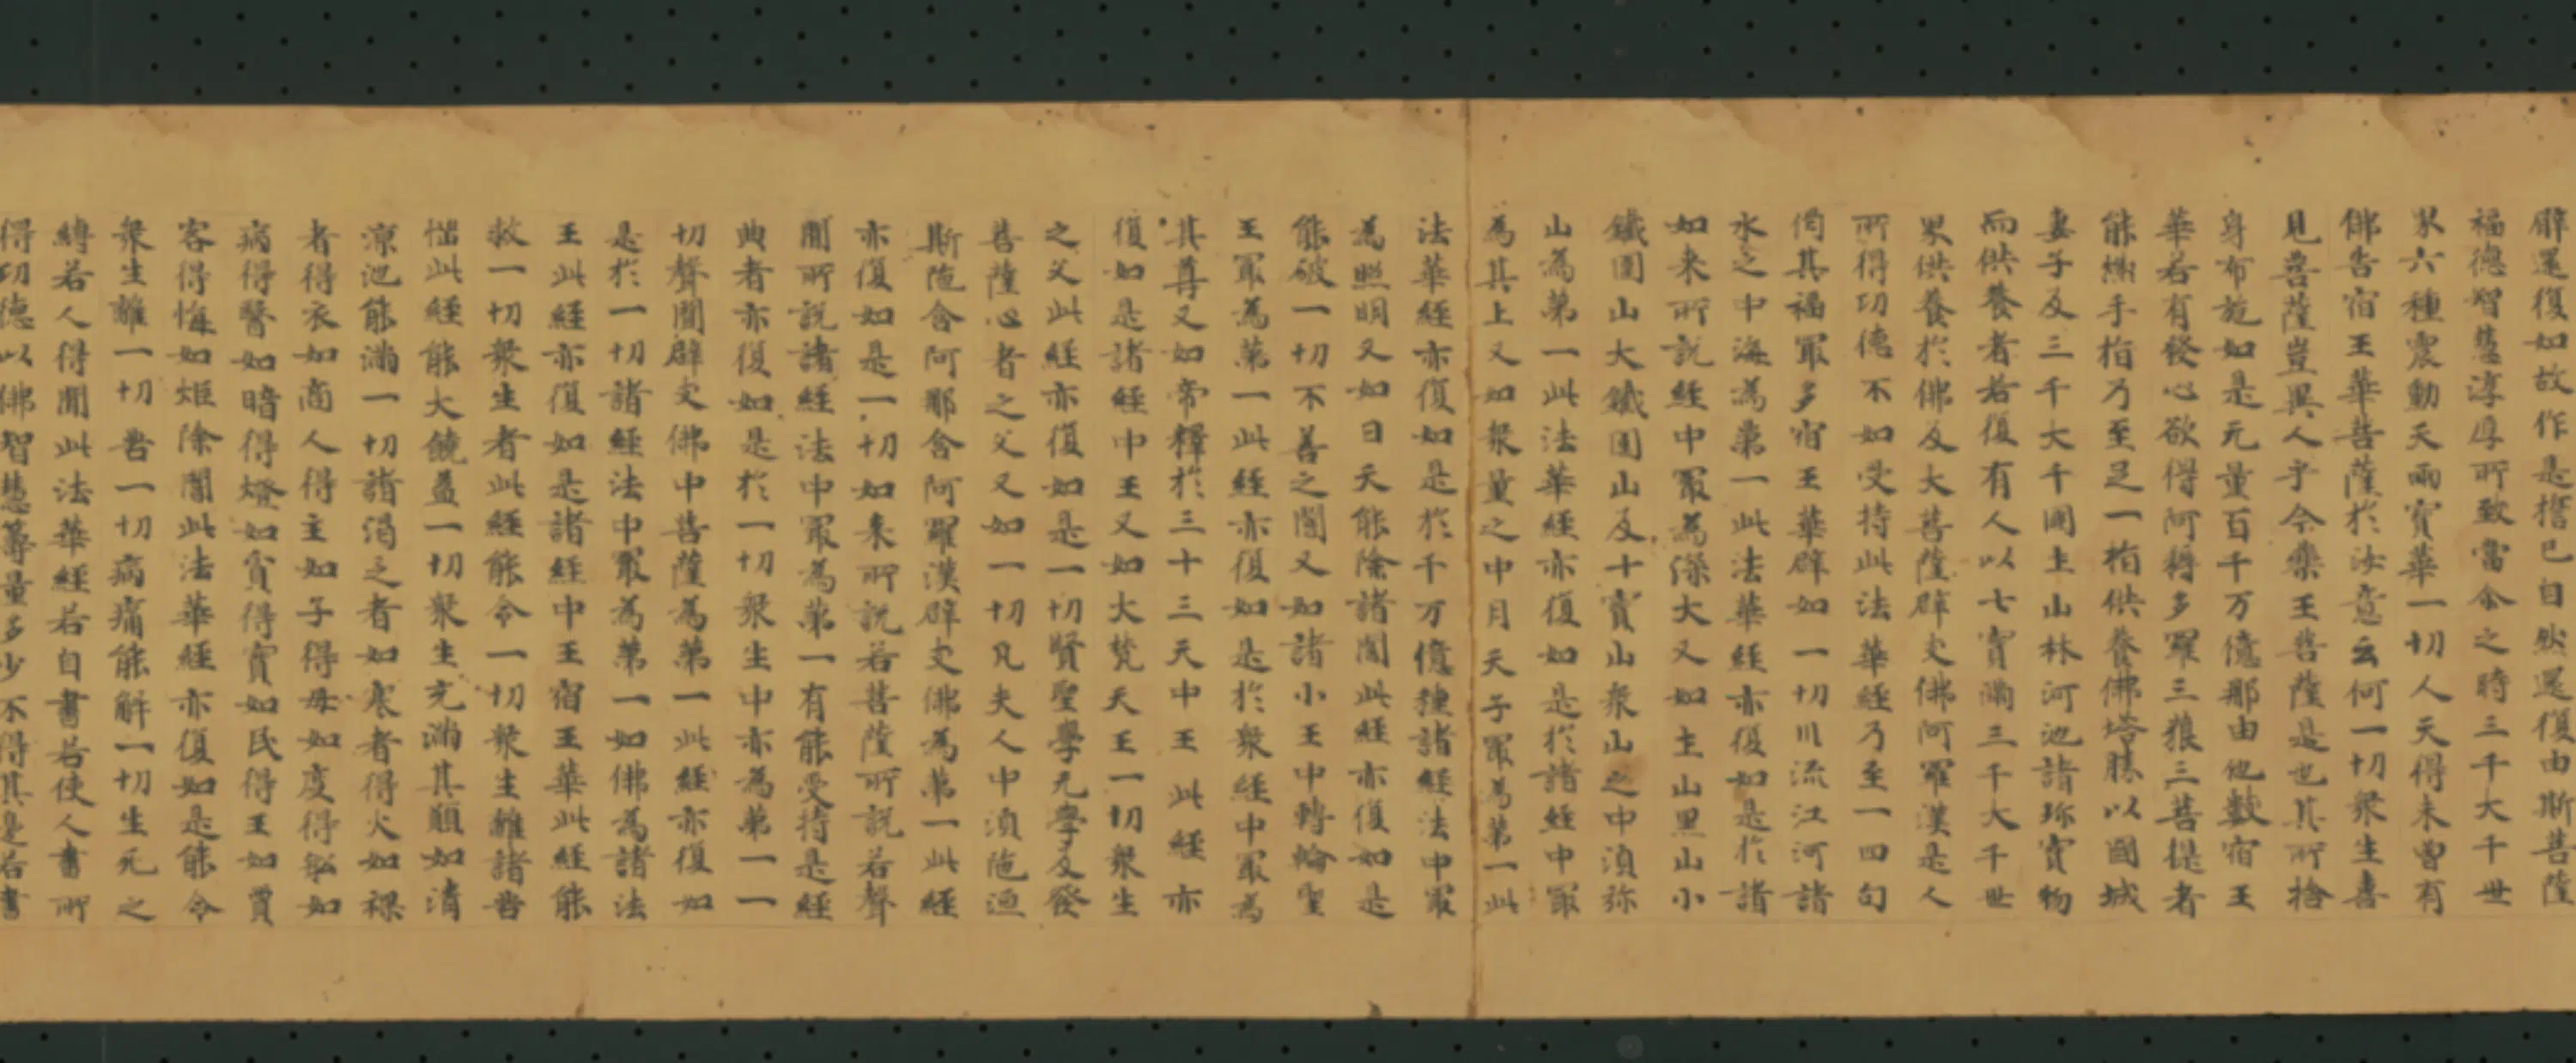 臂還復如故作是擔已自然還復由斯菩薩
福德智慧淳厚所致當令之時三千大千世
界六種震動天雨寶華一切人天得未曾有
佛告宿王華菩薩於汝意云何一切衆生憙
見菩薩豈異人乎今藥王菩薩是也其所捨
身布施如是无量百千万億那由他數宿王
華若有發心欲得阿耨多羅三藐三菩提者
能燃手指乃至足一指供養佛塔勝以國城
妻子及三千大千國土山林河池諸珎寶物
而供養者若復有人以七寶滿三千大千世
界供養於佛及大菩薩辟支佛阿羅漢是人
所得功德不如受持此法華經乃至一四句
偈其福冣多宿王華辟如一切川流江河諸
水之中海為第一此法華經亦復如是於諸
如来所說經中冣為深大又如土山黑山小
鐵圍山大鐵圍山及十寶山衆山之中湏弥
山為第一此法華經亦復如是於諸經中冣
為其上又如衆量之中月天子冣為第一此
法華經亦復如是於千万億種諸經法中冣
為照明又如日天能除諸闇此經亦復如是
能破一切不善之闇又如諸小王中轉輪聖
王冣為第一此經亦復如是於衆經中冣為
其尊又如帝釋於三十三天中王此經亦
復如是諸經中王又如大梵天王一切衆生
之父此經亦復如是一切賢聖學无學及發
菩薩心者之父又如一切凡夫人中湏陁洹
斯陁含阿那含阿羅漢辟支佛為第一此經
亦復如是一切如来所說若菩薩所說若聲
聞所說諸經法中冣為第一有能受持是經
典者亦復如是於一切衆生中亦為第一一
切聲聞辟支佛中菩薩為第一此經亦復如
是於一切諸經法中冣為第一如佛為諸法
王此經亦復如是諸經中王宿王華此經能
救一切衆生者此經能令一切衆生離諸苦
惱此經能大饒益一切衆生充滿其願如清
涼池能滿一切諸渴乏者如寒者得火如裸
者得衣如商人得主如子得母如度得船如
病得醫如暗得燈如貧得寶如民得王如賈
客得海如炬除闇此法華經亦復如是能令
衆生離一切苦一切病痛能解一切生死之
縛若人得聞此法華經若自書若使人書所
得功德以佛智慧籌量多少不得其邊若書